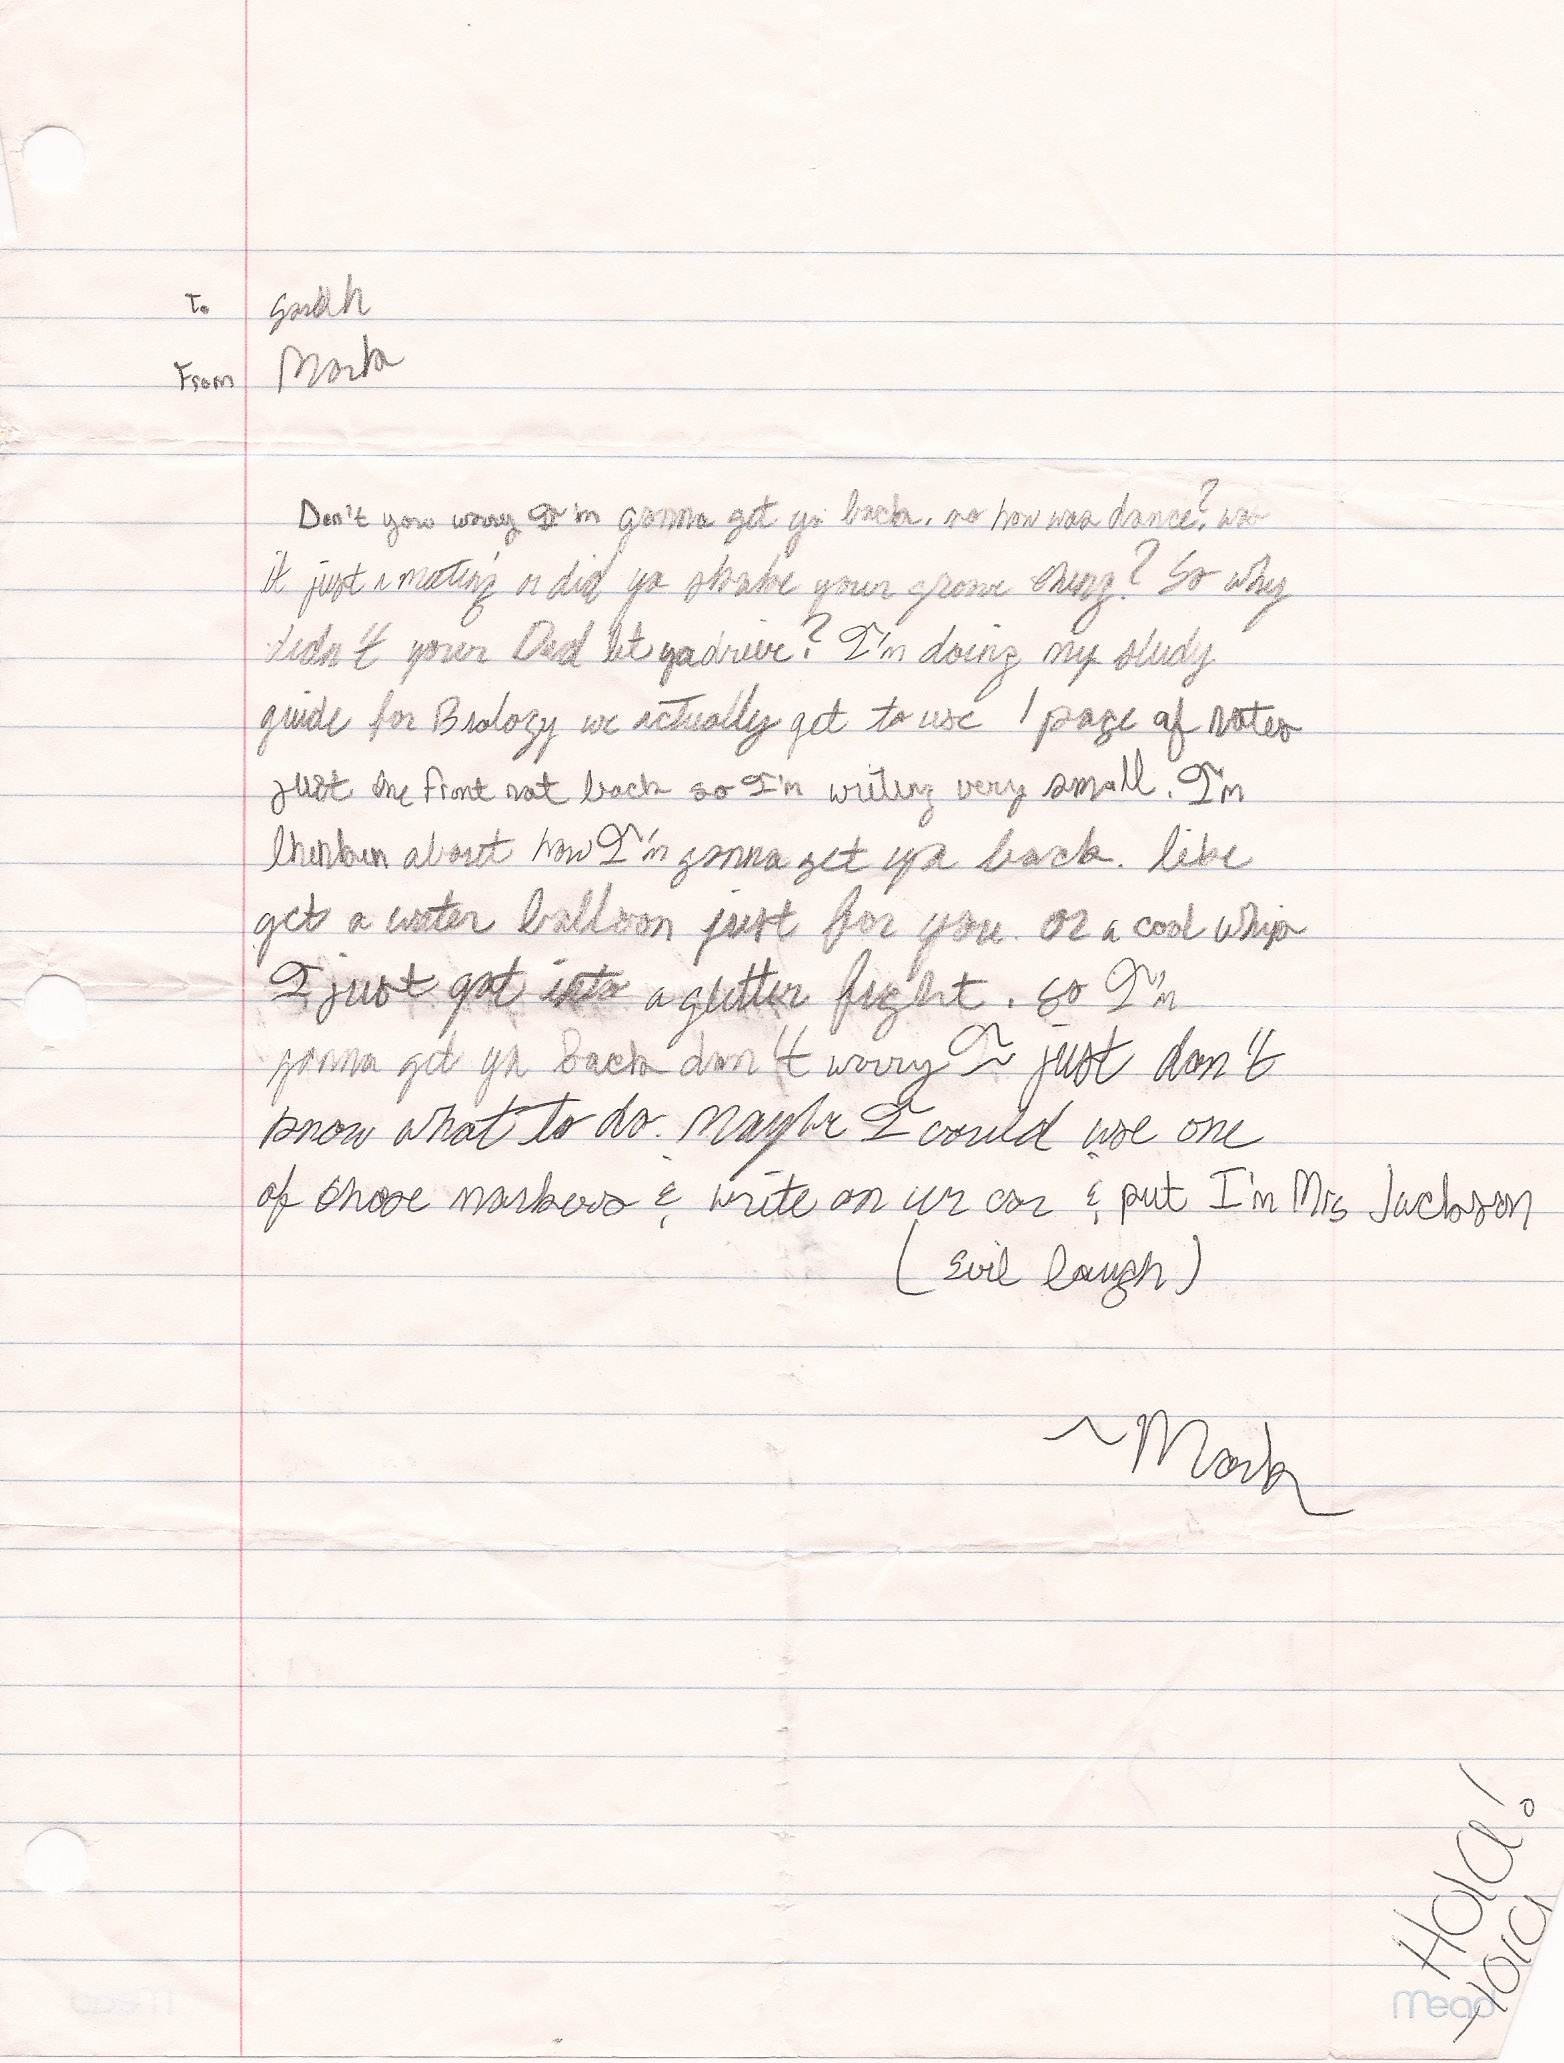 To Sarah
From Mark
Don't you worry I'm gonna get ya back. so how was dance? was
it just a meeting or did ya shake your groove thing? So why
didn't your Dad let ya drive? I'm doing my study
guide for Biology we actually get to use 1 page of notes
just the front not back so I'm writing very small. I'm
about how I'm gonna get ya back. like
get a water balloon just for you. or a cool whip
I just got into a glitter fight. so I'm
gonna get ya back don't worry I just don't
know what to do. Maybe I could use one
of those markers & write on ur car & put I'm Mrs Jackson
(Evil laugh)
~Mark
Hola!
Hola
Mead